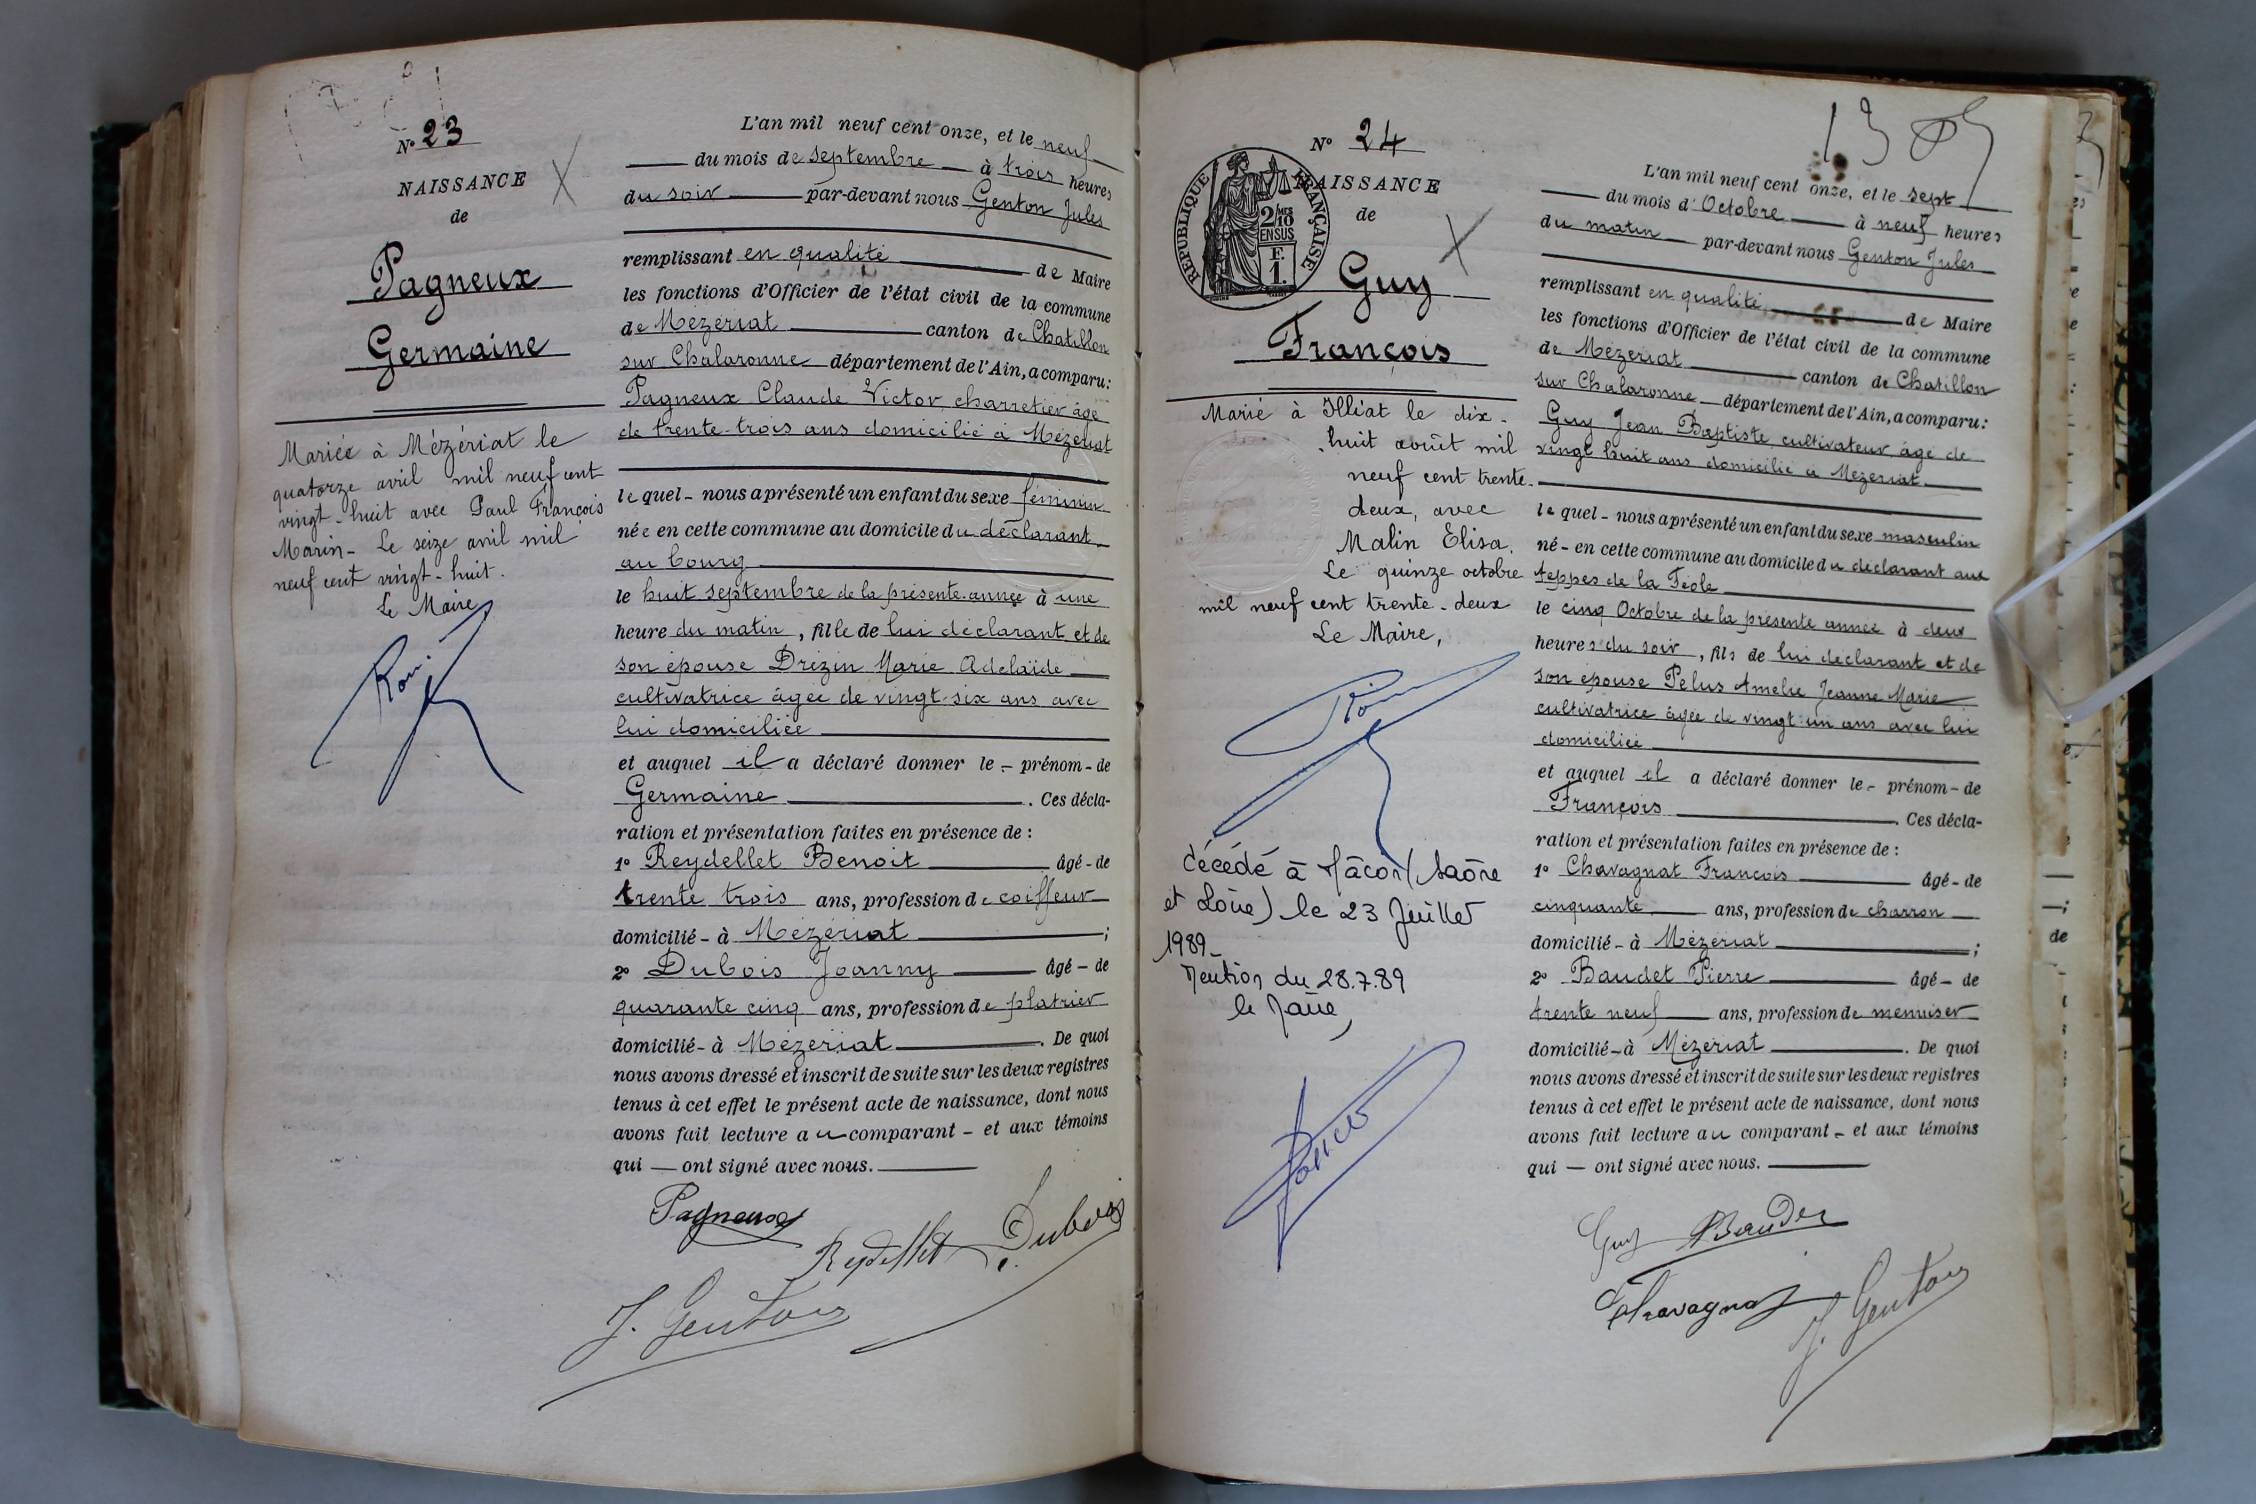 N° 23
NAISSANCE
de
Pagneux
Germaine
Mariée à Mézériat le
quatorze avril mil neuf cent
vingt-huit avec Paul François
Marin- Le seize avril mil
neuf cent vingt-huit.
Le Maire,
L'an mil neuf cent onze, et le neuf
du mois de septembre à trois heures
du soir par-devant nous Genton Jules
remplissant en qualité de Maire
les fonctions d'Officier de l'état civil de la commune
de Mézériat canton de Chatillon
sur Chalaronne département de l'Ain, a comparu:
Pagneux Claude Victor, charretier âgé
de trente-trois ans domicilié à Mézériat
lequel - nous a présenté un enfant du sexe féminin
née en cette commune au domicile du déclarant
au bourg
le huit septembre de la présente année à une
heure du matin, fille de lui déclarant et de
son épouse Drézin Marie Adelaïde
cultivatrice âgée de vingt-six ans avec
lui domiciliée
et auquel il a déclaré donner le - prénom - de
Germaine . Ces décla-
ration et présentation faites en présence de :
1° Reydellet Benoit âgé - de
trente trois ans, profession de coiffeur
domicilié - à Mézériat ;
2° Dubois Joanny âgé - de
quarante cinq ans, profession de platrier
domicilié - à Mézériat . De quoi
nous avons dressé et inscrit de suite sur les deux registres
tenus à cet effet le présent acte de naissance, dont nous
avons fait lecture au comparant - et aux témoins
qui — ont signé avec nous.
Pagneux
Reydellet Dubois
J. Genton
N° 24
NAISSANCE
de
RÉPUBLIQUE FRANÇAISE
2/10 MES
EN SUS
F.
1.
Guy
François
Marié à Illiat le dix-
huit août mil
neuf cent trente-
deux, avec
Malin Elisa.
Le quinze octobre
mil neuf cent trente-deux
Le Maire,
décédé à Mâcon (Saône
et Loire) le 23 Juillet
1989_
Mention du 28.7.89
le Maire,
L'an mil neuf cent onze, et le sept
du mois d'Octobre à neuf heures
du matin par-devant nous Genton Jules
remplissant en qualité de Maire
les fonctions d'Officier de l'état civil de la commune
de Mézériat canton de Chatillon
sur Chalaronne département de l'Ain, a comparu:
Guy Jean Baptiste cultivateur âgé de
vingt huit ans domicilié à Mézériat
lequel - nous a présenté un enfant du sexe masculin
né - en cette commune au domicile du déclarant aux
teppes de la Féole
le cinq Octobre de la présente année à deux
heures du soir, fils de lui déclarant et de
son épouse Pelus Amélie Jeanne Marie
cultivatrice âgée de vingt-un ans avec lui
domiciliée
et auquel il a déclaré donner le - prénom - de
François . Ces décla-
ration et présentation faites en présence de :
1° Chavagnat François âgé - de
cinquante ans, profession de charron
domicilié - à Mézériat ;
2° Baudet Pierre âgé - de
trente neuf ans, profession de menuiser
domicilié - à Mézériat . De quoi
nous avons dressé et inscrit de suite sur les deux registres
tenus à cet effet le présent acte de naissance, dont nous
avons fait lecture au comparant - et aux témoins
qui — ont signé avec nous.
Guy Baudet
Chavagnat
J. Genton